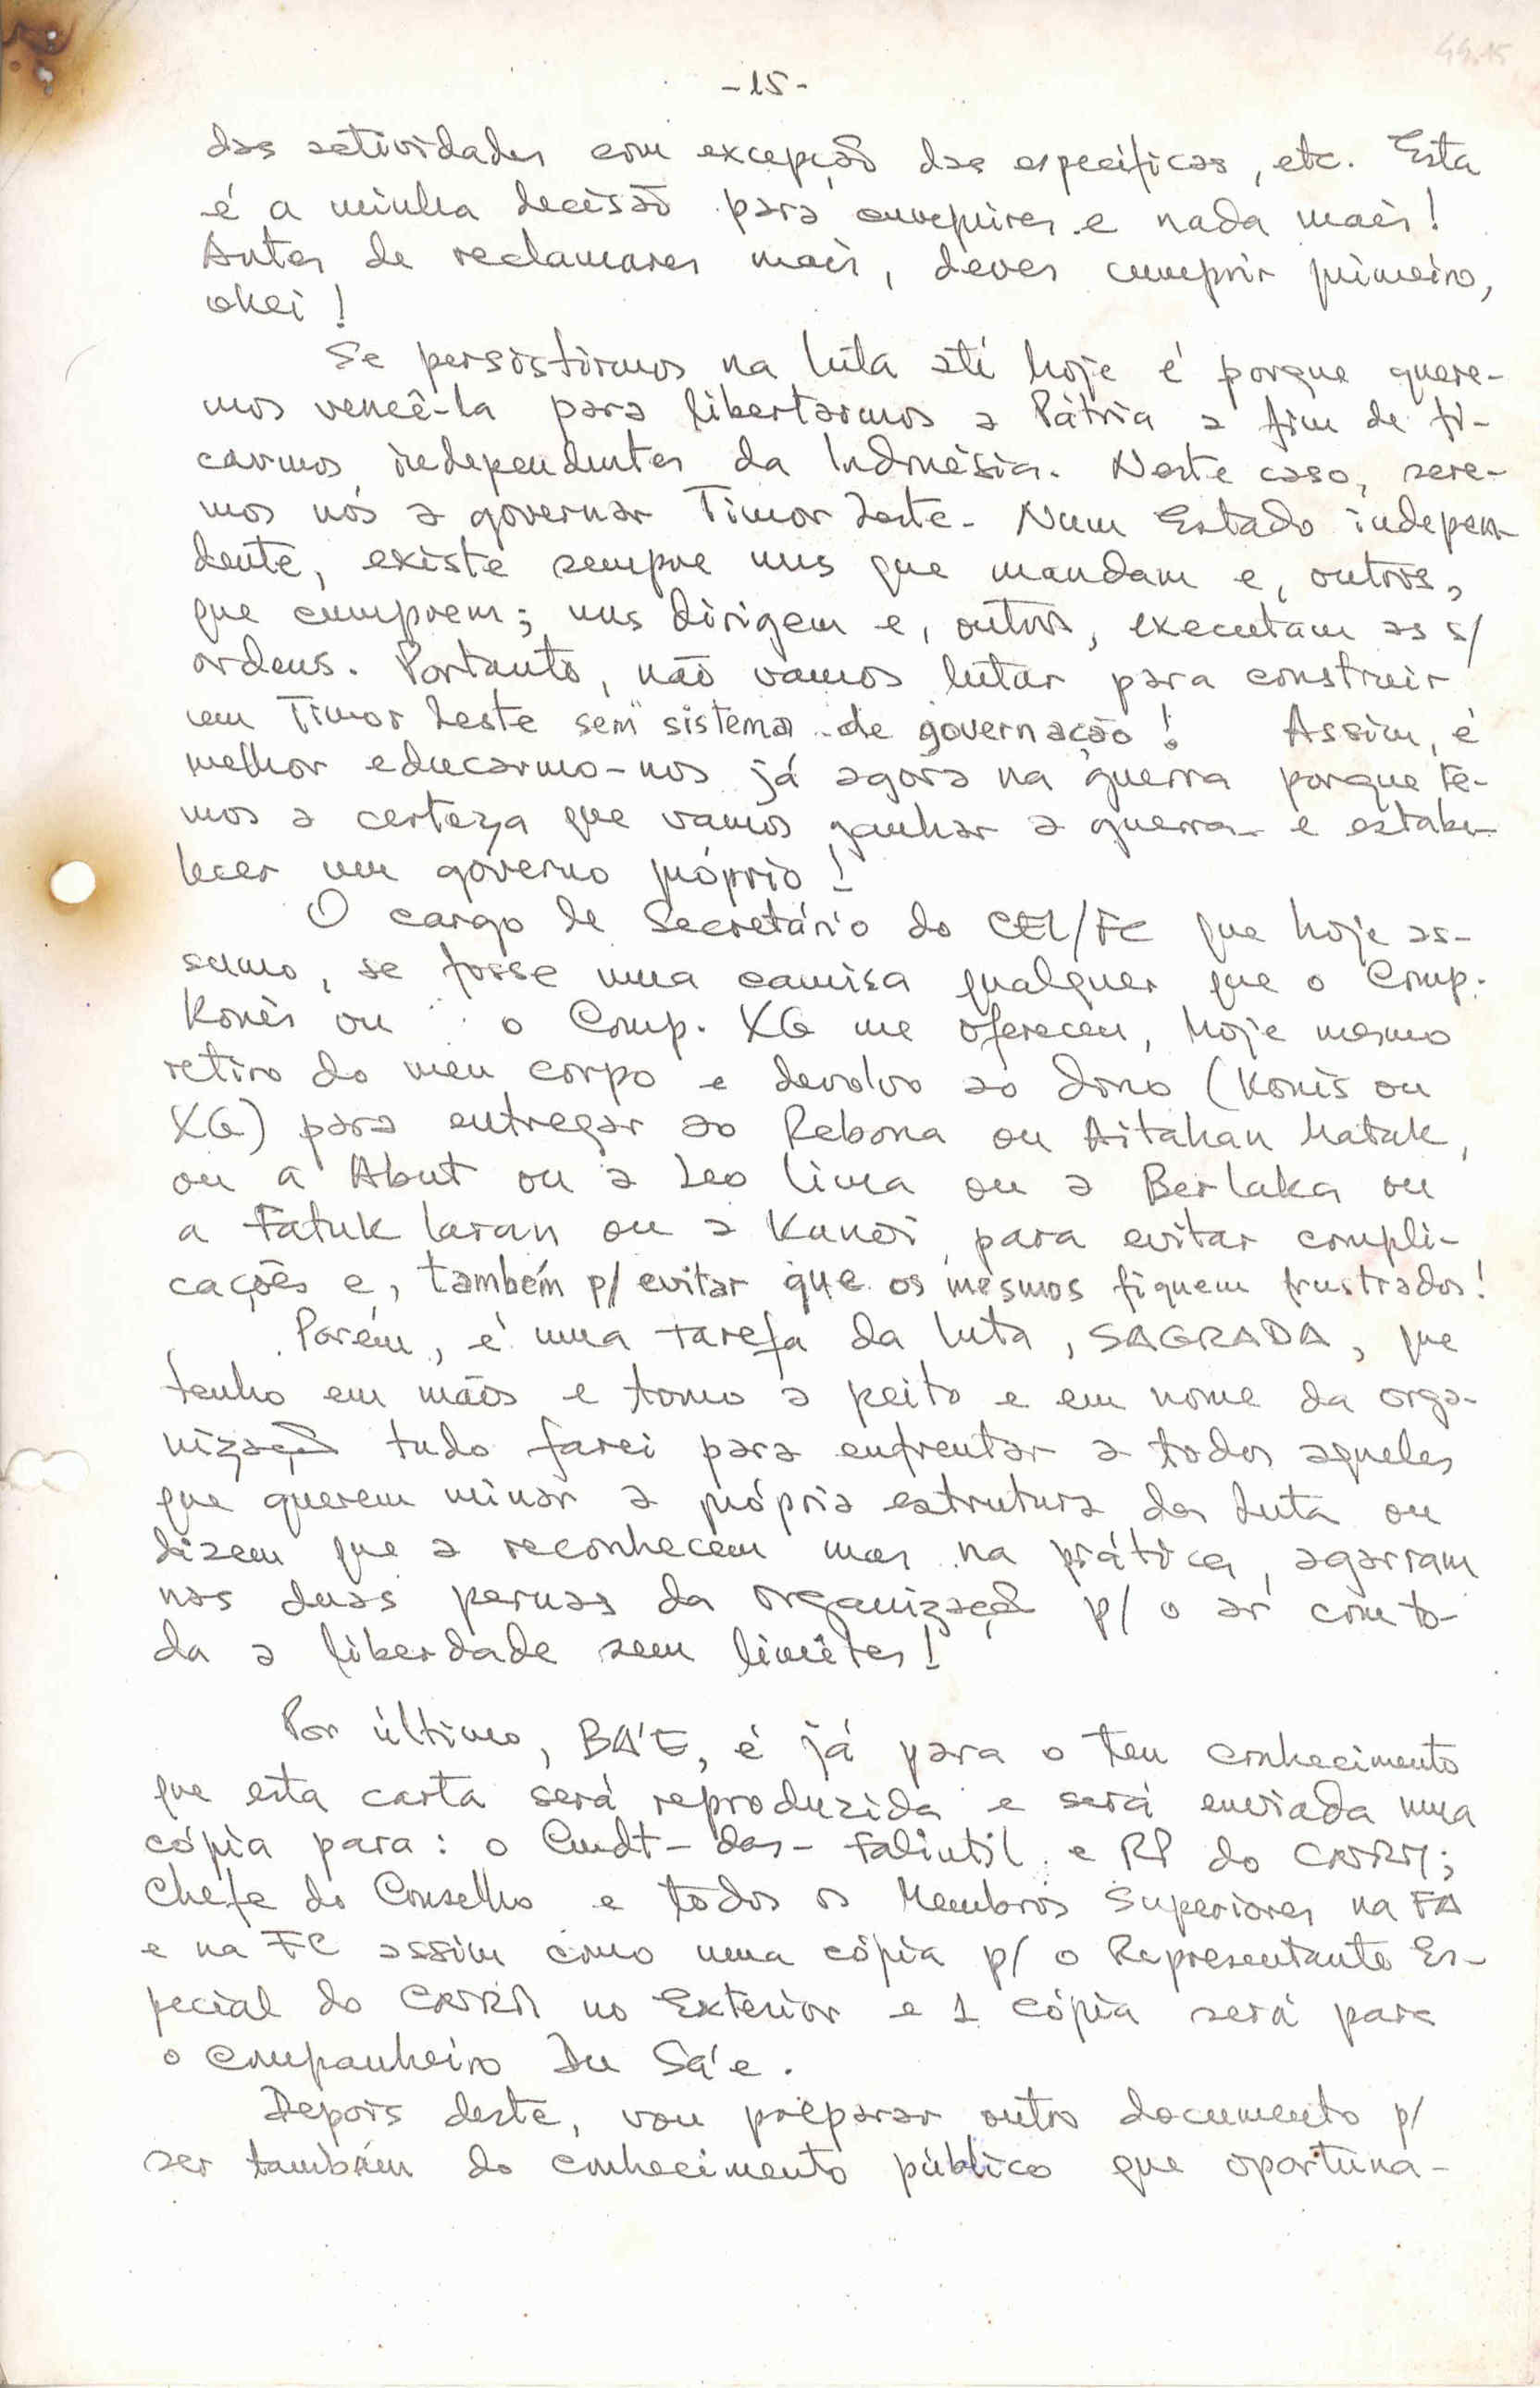 44.15
-15-
das actividades com excepção das específicas, etc. Esta
é a minha decisão para cumprires e nada mais!
Antes de reclamares mais, deves cumprir primeiro,
okei!
Se persistirmos na luta até hoje é porque quere-
mos vencê-la para libertarmos a Pátria a fim de fi-
carmos independentes da Indonésia. Neste caso, sere-
mos nós a governar Timor Leste. Num Estado indepen-
dente, existe sempre uns que mandam e, outros,
que cumprem; uns dirigem e, outros, executam as s/
ordens. Portanto, não vamos lutar para construir
um Timor Leste sem sistema de governação! Assim, é
melhor educarmo-nos já agora na guerra porque te-
mos a certeza que vamos ganhar a guerra e estabe-
lecer um governo próprio!
O cargo de Secretário do CEL/FC que hoje as-
sumo, se fosse uma camisa qualquer que o Comp.
Konis ou o Comp. XG me ofereceu, hoje mesmo
retiro do meu corpo e devolvo ao dono (Konis ou
XG) para entregar ao Rebona ou Aitahan Matak,
ou a Abut ou a Leo Lima ou a Berlaka ou
a Fatuk laran ou a Kunoi, para evitar compli-
cações e, também p/ evitar que os mesmos fiquem frustrados!
Porém, é uma tarefa da luta, SAGRADA, que
tenho em mãos e tomo a peito e em nome da orga-
nização tudo farei para enfrentar a todos aqueles
que querem minar a própria estrutura da Luta ou
dizem que a reconhecem mas na prática, agarram
nas duas pernas da organização p/ o ar com to-
da a liberdade sem limites!
Por último, BÁ'E, é já para o teu conhecimento
que esta carta será reproduzida e será enviada uma
cópia para: o Cmdt-das-Falintil e RP do CNRM;
Chefe do Conselho e todos os Membros Superiores na FA
e na FC assim como uma cópia p/ o Representante Es-
pecial do CNRM no Exterior e 1 cópia será para
o companheiro Du Sá'e.
Depois deste, vou preparar outro documento p/
ser também do conhecimento público que oportuna-